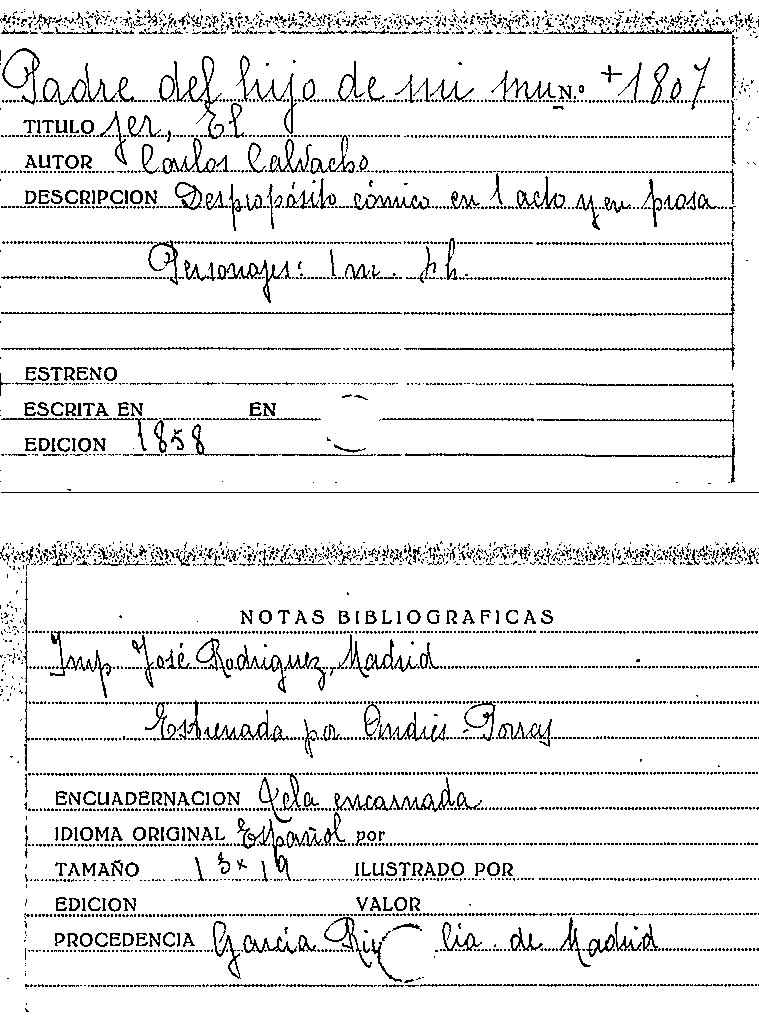 Padre del hijo de mi mu N.º +1807
TITULO jer, El
AUTOR Carlos Calvacho
DESCRIPCION Despropósito cómico en 1 acto y en prosa
Personajes: 1 m. h.
ESTRENO
ESCRITA EN EN
EDICION 1858
NOTAS BIBLIOGRAFICAS
Imp José Rodriguez, Madrid
Estrenada por Andrés Porras
ENCUADERNACION Tela encarnada
IDIOMA ORIGINAL Español por
TAMAÑO 13x19 ILUSTRADO POR
EDICION VALOR
PROCEDENCIA García de Madrid